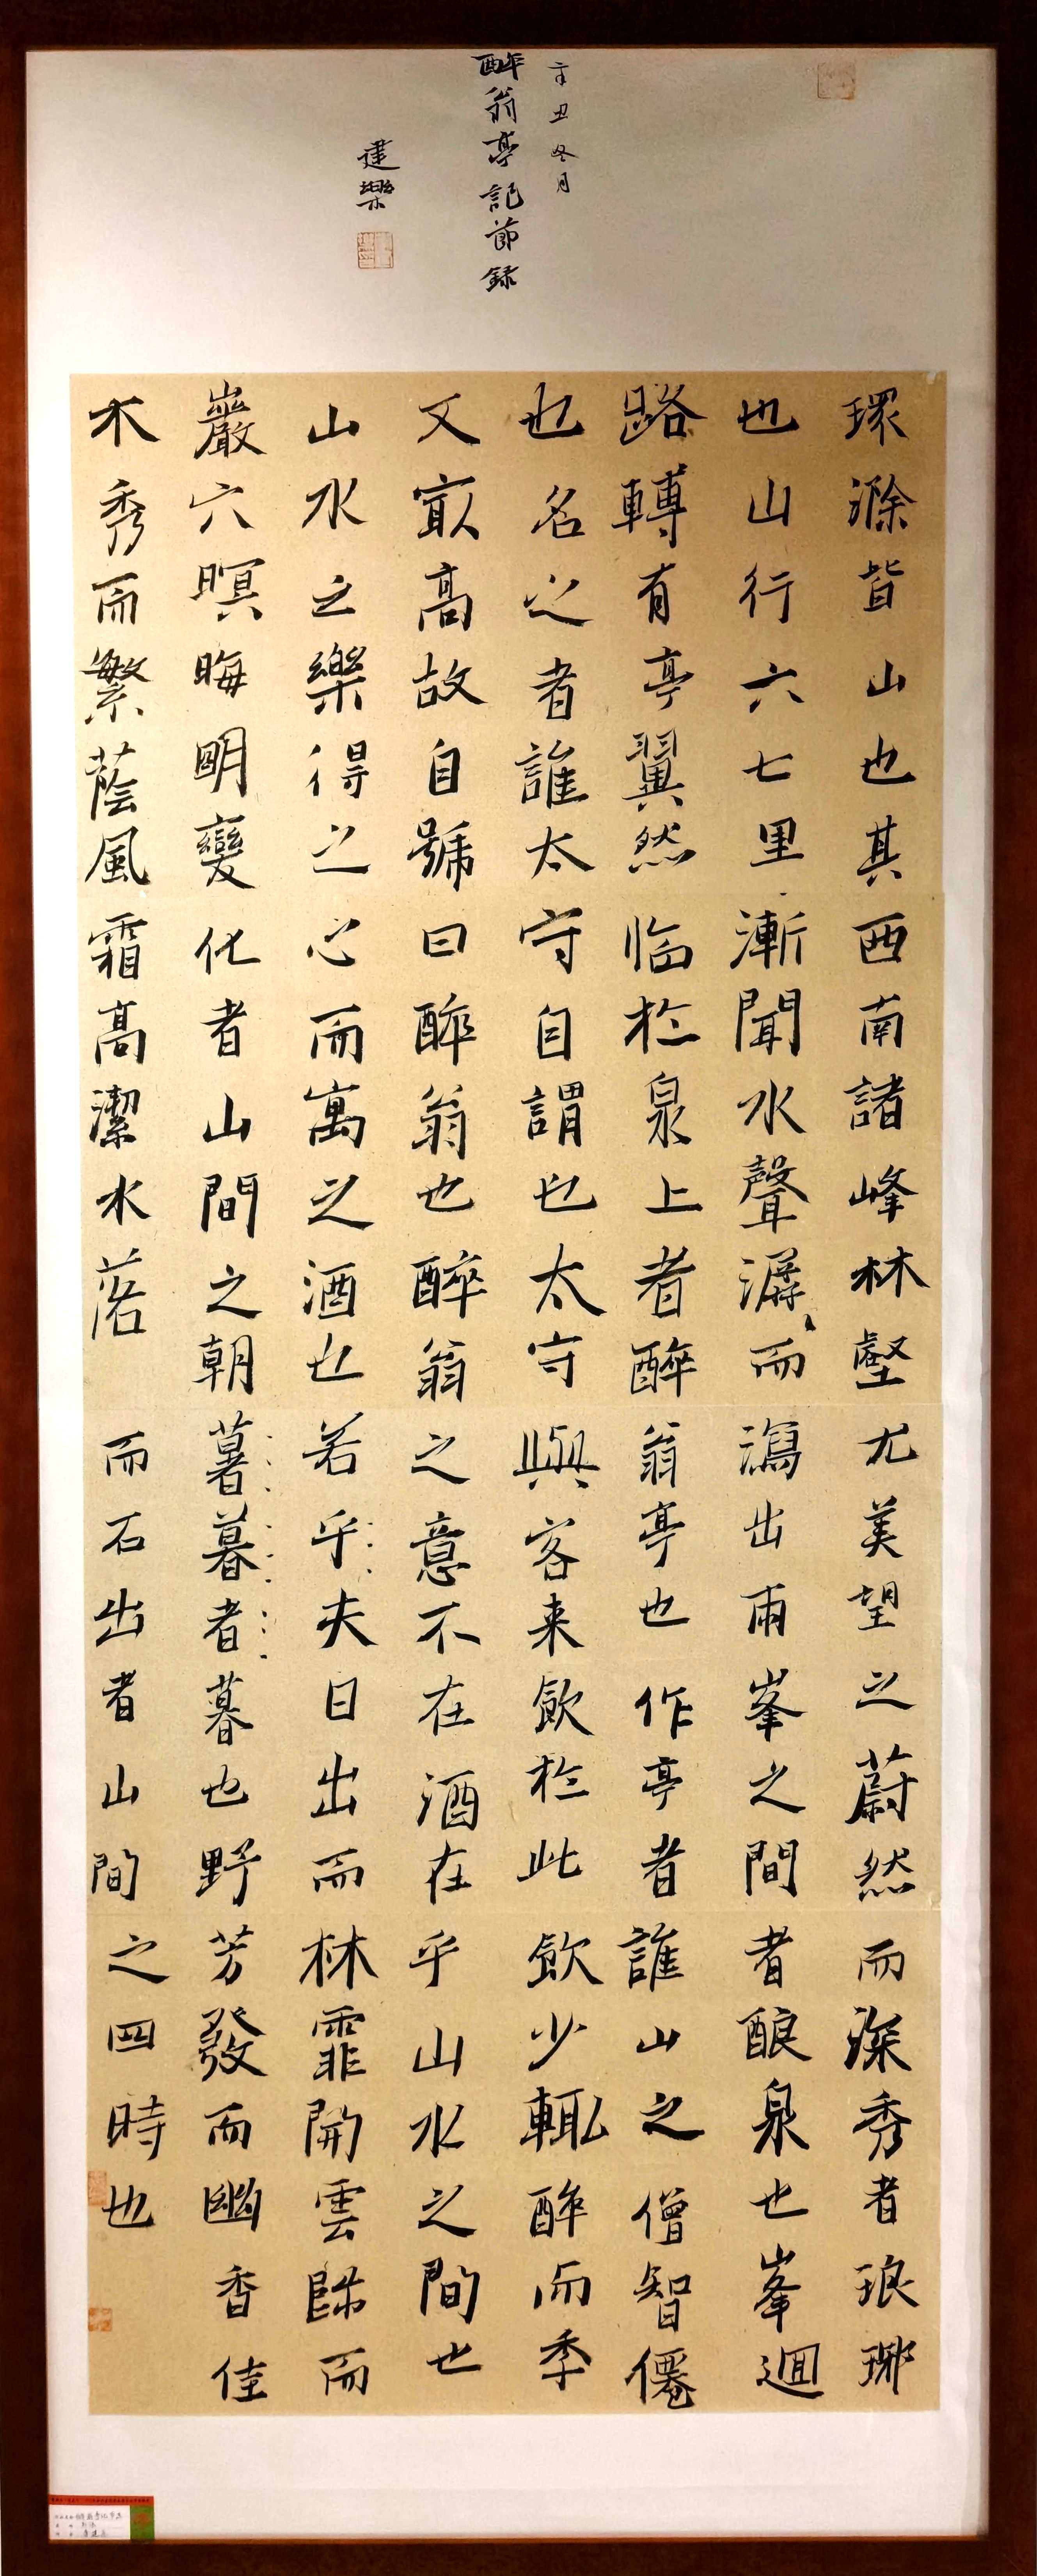 辛丑冬月
醉翁亭記節録
建樂
環滁皆山也其西南諸峰林壑尤美望之蔚然而深秀者琅琊
也山行六七里漸聞水聲潺〻而瀉出兩峯之間者酿泉也峯迴
路轉有亭翼然临於泉上者醉翁亭也作亭者誰山之僧智僊
也名之者誰太守自謂也太守與客来飲於此飲少輒醉而秊
又冣高故自號曰醉翁也醉翁之意不在酒在乎山水之間也
山水之樂得之心而寓之酒也若乎夫日出而林霏開雲歸而
巖穴暝晦明變化者山間之朝暮暮者暮也野芳發而幽香佳
木秀而繁蔭風霜高潔水落而石出者山間之四時也